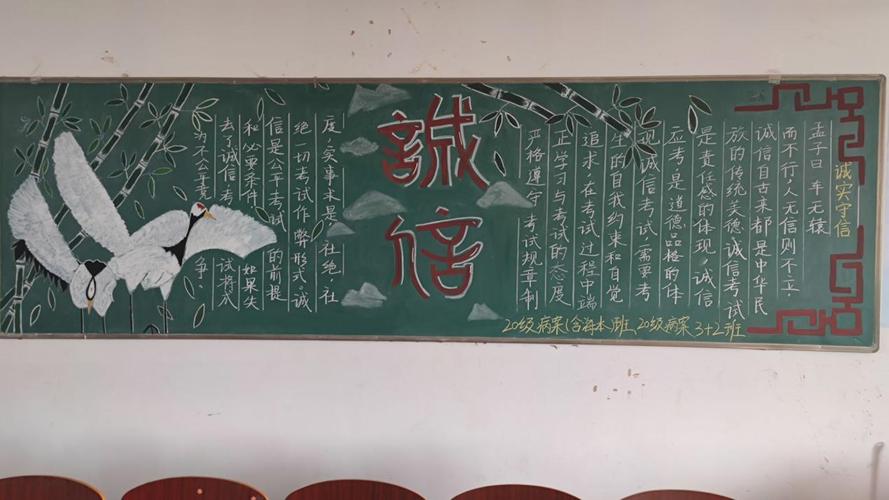 诚实守信
孟子曰 车无辕
而不行,人无信则不立,
诚信自古来都是中华民
族的传统美德,诚信考试
是责任感的体现,诚信
应考是道德品格的体
现,诚信考试,需要考
生的自我约束和自觉
追求,在考试过程中端
正学习与考试的态度
严格遵守考试规章制
誠信
度,实事求是,社绝,社
绝一切考试作弊形式。诚
信是公平考试的前提
和必要条件,如果失
去了诚信,考试将成
为不公平竞争。
20级病案(含海本)班 20级病案3+2班